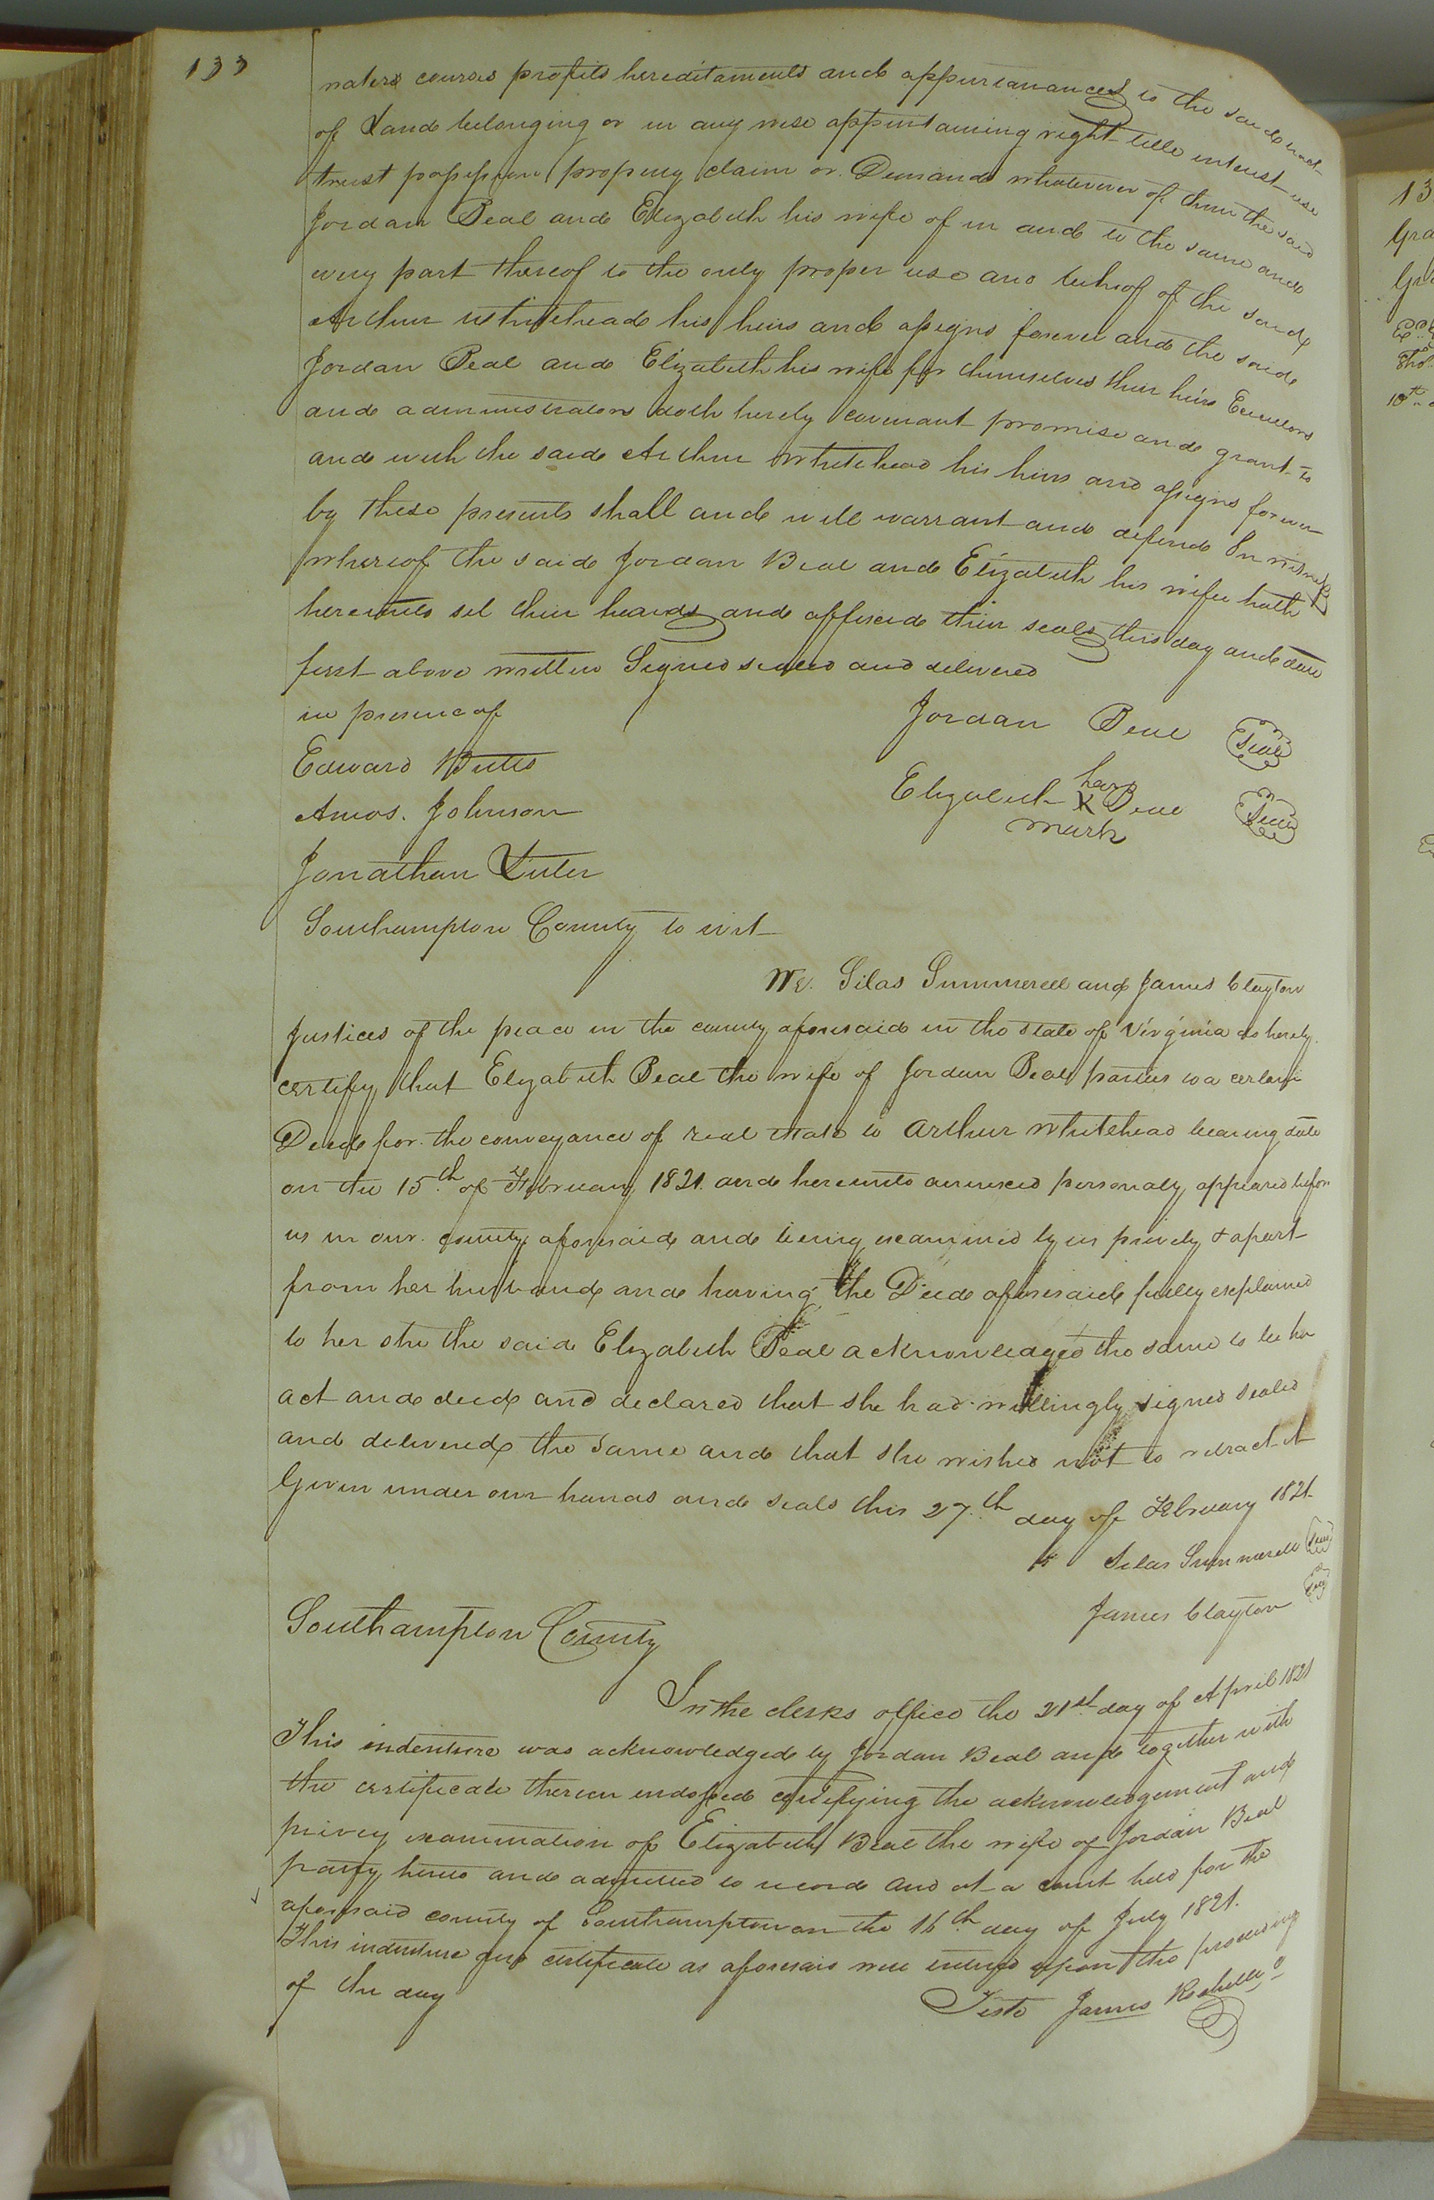 133
waters courses profits hereditaments and appurtenances to the said tract
of Land belonging or in any wise appertaining right title interest use
trust possession property claim or Demand whatsoever of them the said
Jordan Beal and Elizabeth his wife of in and to the same and
every part thereof to the only proper use and behoof of the said
Arthur Whitehead his heirs and assigns forever and the said
Jordan Beal and Elizabeth his wife for themselves their heirs Executors
and administrators doth hereby covenant promise and grant to
and with the said Arthur Whitehead his heirs and assigns forever
by these presents shall and will warrant and defend In witness
whereof the said Jordan Beal and Elizabeth his wife hath
hereunto set their hands and affixed their seals this day and date
first above written Signed sealed and delivered
in presence of
Jordan Beal Seal
Edward Butts
Elizabeth her X Beal Seal
mark
Amos. Johnson
Jonathan Luter
Southampton County to wit
We. Silas Summerell and James Clayton
Justices of the peace in the county aforesaid in the state of Virginia do hereby
certify that Elizabeth Beal the wife of Jordan Beal parties to a certain
Deed for the conveyance of real estate to Arthur Whitehead bearing date
on the 15th of February 1821 and hereunto annexed personally appeared before
us in our county aforesaid and being examined by us privily & apart
from her husband and having the Deed aforesaid fully explained
to her she the said Elizabeth Beal acknowledged the same to be her
act and deed and declared that she had willingly signed sealed
and delivered the same and that she wished not to retract it
Given under our hands and seals this 27th day of February 1821
Silas Summerell Seal
James Clayton Seal
Southampton County
In the clerks office the 21st day of April 1821
This indenture was acknowledged by Jordan Beal and together with
the certificate thereon endorsed certifying the acknowledgement and
privey examination of Elizabeth Beal the wife of Jordan Beal
party hereto and admitted to record and at a court held for the
aforesaid county of Southampton on the 16th day of July 1821.
This indenture and certificate as aforesaid were entered upon the proceeding
of the day
Teste James Rochelle
13
Gra
10th